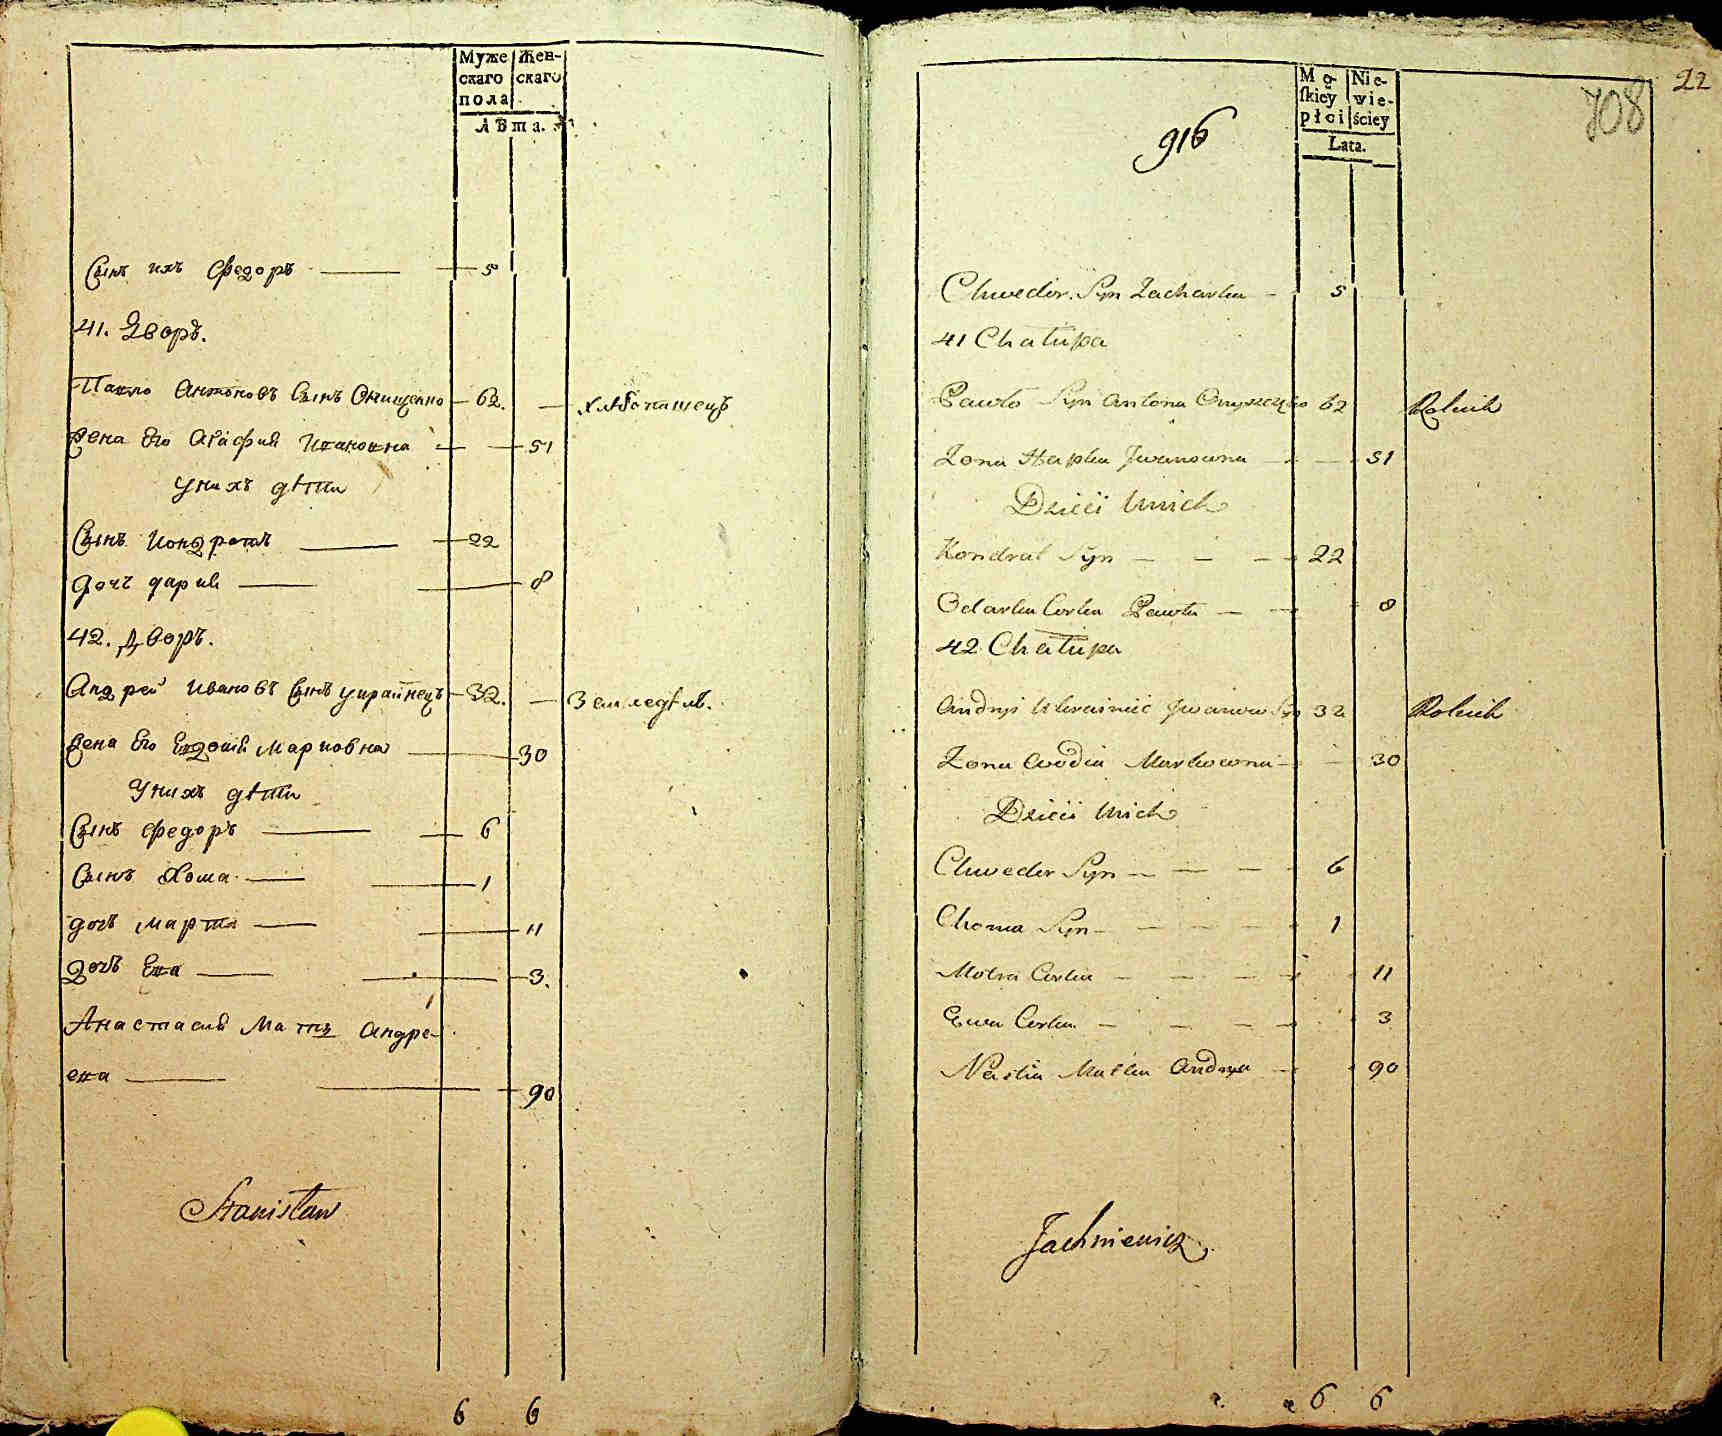 Муже Жен-
скаго скаго
пола
Лѣта.
Сынъ ихъ Федоръ 5
41. Дворъ.
Павло Антоновъ Сынъ Онищенко 62. хлѣбопашецъ
Жена Его Агафия Ивановна 51
У нихъ дѣти
Сынъ Кондратъ 22
дочь дария 8
42. Дворъ.
Андрей Ивановъ Сынъ украйнецъ 32. Земледѣл.
Жена Его Евдокия Марковна 30
У нихъ дѣти
Сынъ Федоръ 6
Сынъ Хома 1
дочь Марта 11
дочь Ева 3.
Анастасия Мать Андре-
ева 90
Stanisław
6 6
22
708
916
Mę- Nie-
skiey wie-
płci ściey
Lata.
Chwedor. Syn Zacharka 5
41 Chałupa
Pawło Syn Antona Onyszczenko 62 Rolnik
Zona Hapka Jwanowna 51
Dzieci Unich
Kondrat Syn 22
Odarka Corka Pawła 8
42 Chałupa
Andryi Ukrainiec Jwanow Syn 32 Rolnik
Zona Owdia Markowna 30
Dzieci Unich
Chwedor Syn 6
Choma Syn 1
Motra Corka 11
Ewa Corka 3
Nastia Matka Andryia 90
Jachniewicz
6 6